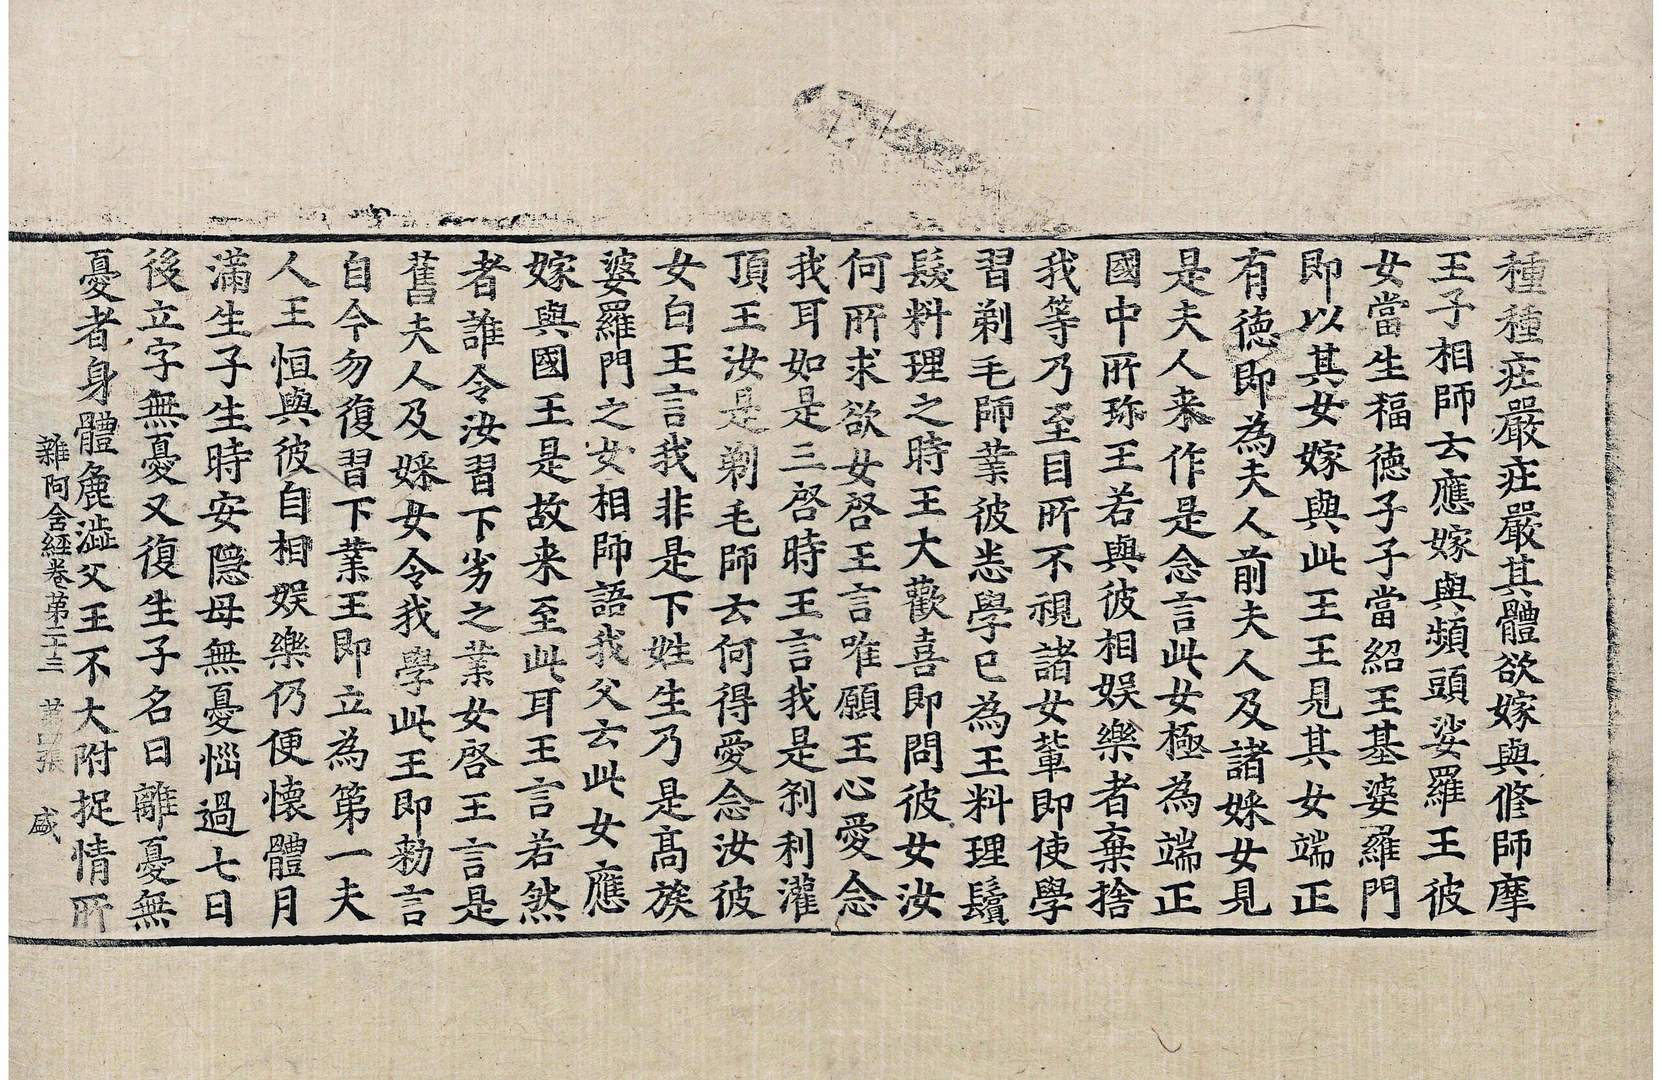 種種疘嚴疘嚴其體欲嫁與修師摩
王子相師去應嫁與頻頭娑羅王彼
女當生福德子子當紹王基婆羅門
即以其女嫁與此王王見其女端正
有德即為夫人前夫人及諸婇女見
是夫人来作是念言此女極為端正
國中所珎王若與彼相娱樂者棄捨
我等乃至目所不視諸女軰即使學
習剃毛師業彼悉學已為王料理鬚
髮料理之時王大歡喜即問彼女汝
何所求欲女啓王言唯願王心愛念
我耳如是三啓時王言我是刹利灌
頂王汝是剃毛師云何得愛念汝彼
女白王言我非是下姓生乃是高族
婆羅門之女相師語我父云此女應
嫁與國王是故来至此耳王言若然
者誰令汝習下劣之業女啓王言是
舊夫人及婇女令我學此王即勑言
自今勿復習下業王即立為第一夫
人王恒與彼自相娱樂仍便懐體月
滿生子生時安隠母無憂惱過七日
後立字無憂又復生子名曰離憂無
憂者身體麁澁父王不大附捉情所
雜阿含經卷第二十三 第四張 盛